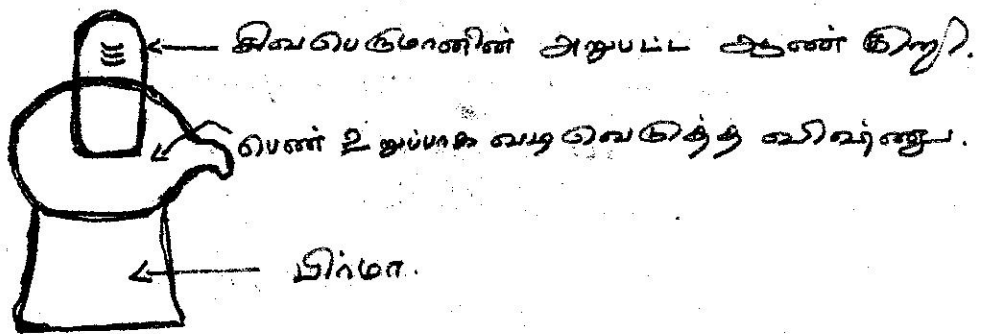 சிவபெருமானின் அறுபட்ட ஆண் குறி.
பெண் உறுப்பாக வடிவெடுத்த விஷ்ணு.
பிர்மா.